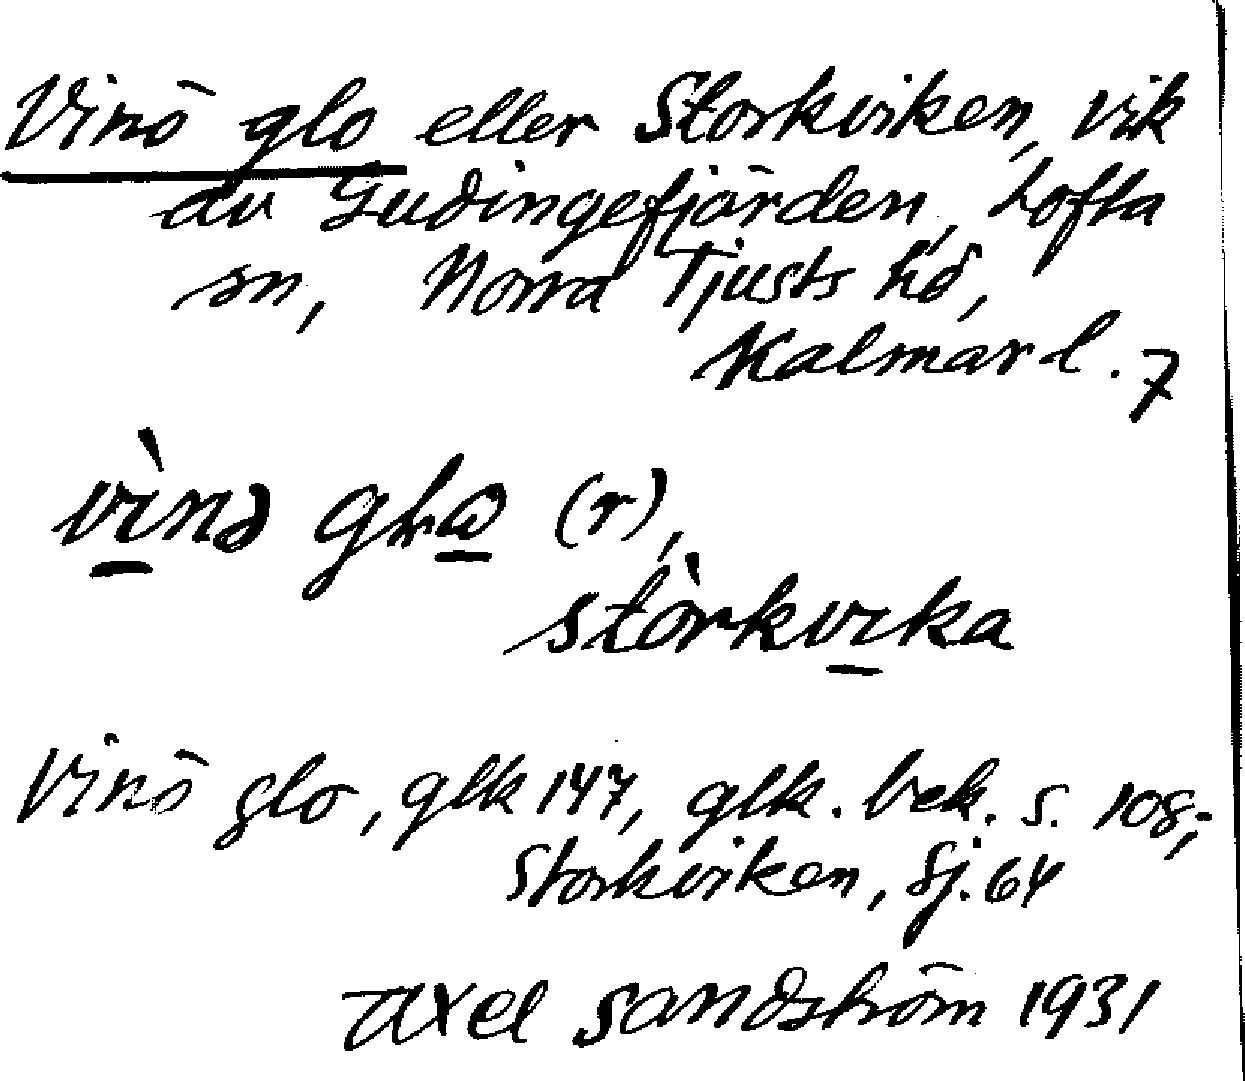 Vinö glo eller Storkviken, vik
av Gudingefjärden, Lofta
sn, Norra Tjusts hd,
Kalmar l. 7
vìnə glɷ (r),
stòrkvika
Vinö glo, glk 147, glk. bek. s. 108,-
Storkviken, Sj. 64
Axel Sandström 1931